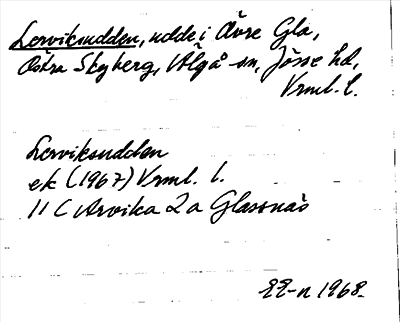 Lerviksudden, udde i Övre Gla,
Östra Skyberg, Älgå sn, Jösse hd,
Vrml. l.
Lerviksudden
ek (1967) Vrml. l.
11 C Arvika 2 a Glassnäs
EE-n 1968.